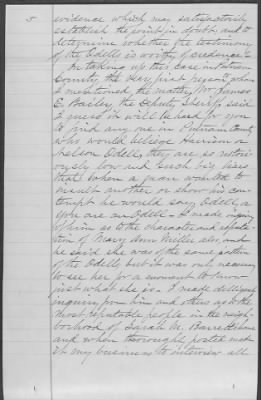 5
evidence which may satisfactorily
establish the point in doubt and to
determine whether the testimony
of the Odells is worthy of credence.
In taking up this case in Putnam
County, the very first person whom
I mentioned the matter, Mr James
E. Bailey, the Deputy Sheriff, said
I guess it will be hard for you
to find any one in Putnam County
who would believe Harrison or
Nelson Odell, they are so notori-
ously low and such
that when a man wanted to
insult another or show his con-
tempt he would say Odell, or
you are an Odell - I made inquiry
of him as to the character and reputa-
tion of Mary Ann Miller also, and
he said she was of the same
of the Odells, but it was only necessary
to see her for a moment to know
just what she is. I made dilligent
inquiry from him and others as to the
most reputable people in the neigh-
borhood of Sarah M.
and when thoroughly posted made
it my business to interview all